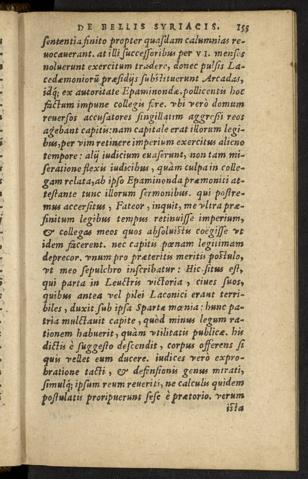 DE BELLIS SYRIACIS. 155
sententia finito propter quasdam calumnias re-
uocauerant. at illi successoribus per VI. menses
noluerunt exercitum tradere, donec pulsis La-
cedæmoniorū præsidijs substituerunt Arcadas,
idq; ex autoritate Epaminondæ, pollicentis hoc
factum impune collegis fore. vbi verò domum
reuersos accusatores singillatim aggressi reos
agebant capitis: nam capitale erat illorum legi-
bus, per vim retinere imperium exercitus alieno
tempore: alij iudicium euaserunt, non tam mi-
seratione flexis iudicibus, quàm culpa in colle-
gam relata, ab ipso Epaminonda præmoniti at-
testante tunc illorum sermonibus. qui postre-
mus accersitus, Fateor, inquit, me vltra præ-
finitum legibus tempus retinuisse imperium,
& collegas meos quos absoluistis coegisse vt
idem facerent. nec capitis pœnam legitimam
deprecor. vnum pro præteritis meritis postulo,
vt meo sepulchro inscribatur: Hic situs est,
qui parta in Leuctris victoria, ciues suos,
quibus antea vel pilei Laconici erant terri-
biles, duxit sub ipsa Spartæ mœnia: hunc pa-
tria mulctauit capite, quòd minus legum ra-
tionem habuerit, quàm vtilitatis publicæ. his
dictis è suggesto descendit, corpus offerens si
quis vellet eum ducere. iudices verò expro-
bratione tacti, & defensionis genus mirati,
simulq; ipsum reum reueriti, ne calculis quidem
postulatis proripuerunt sese è prætorio. verum
ista